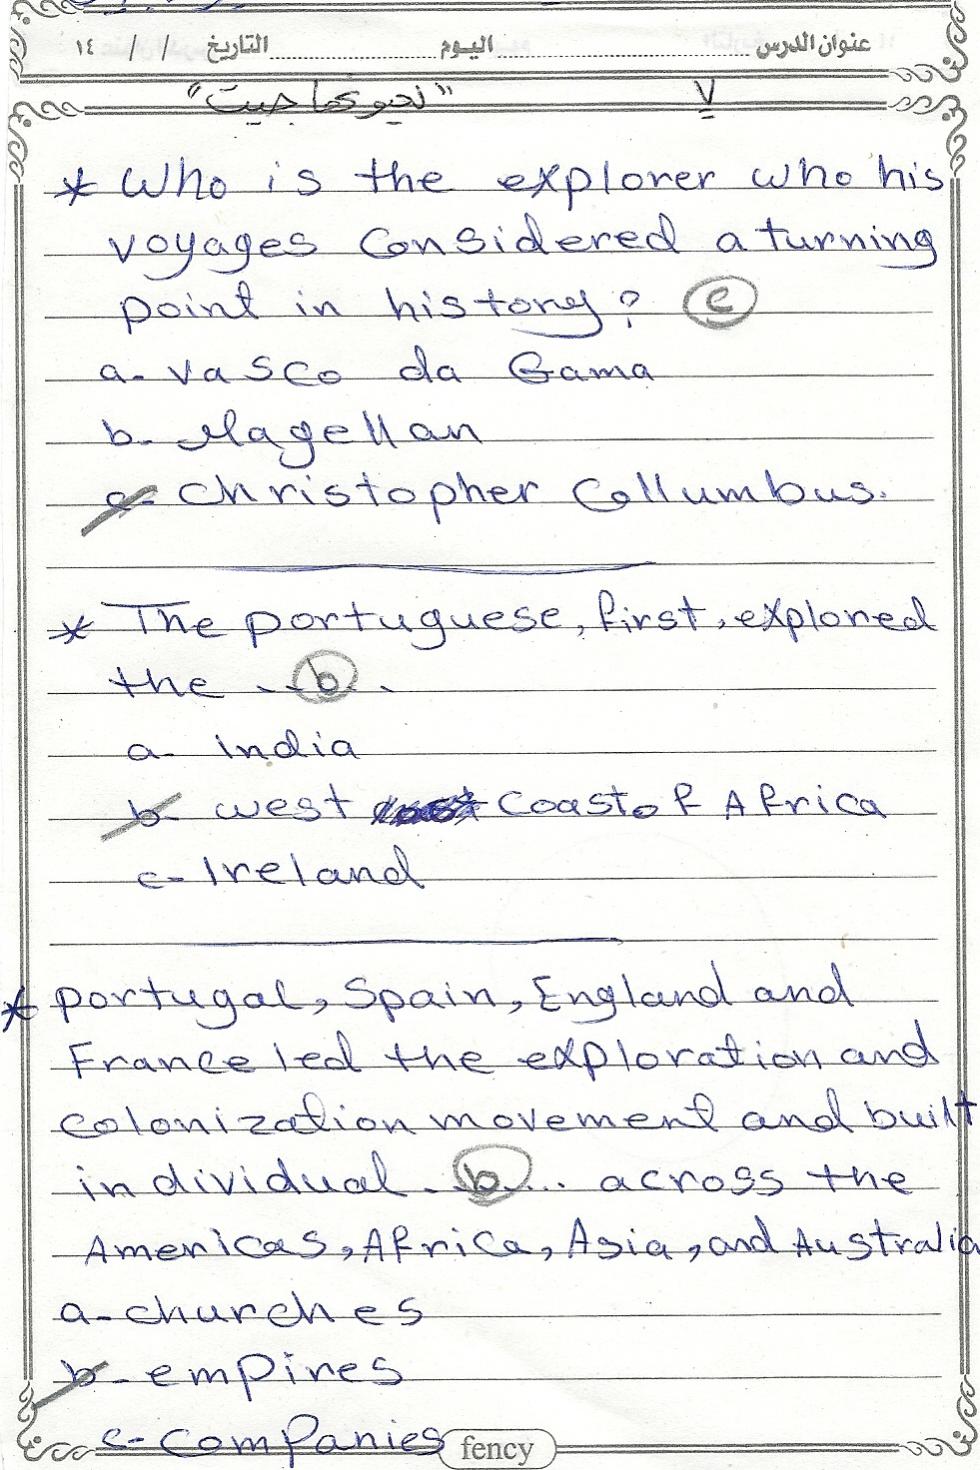 عنوان الدرس ............ اليوم ............ التاريخ / / ١٤
٧
* Who is the explorer who his
voyages considered a turning
point in history? c
a- Vasco da Gama
b- Magellan
c- Christopher Collumbus.
* The portuguese, first, explored
the . . b . .
a- india
b- west coast of Africa
c- Ireland
* portugal, Spain, England and
France led the exploration and
colonization movement and built
individual . . b . . . . across the
Americas, Africa, Asia, and Australia
a- churches
b- empires
c- companies
fency